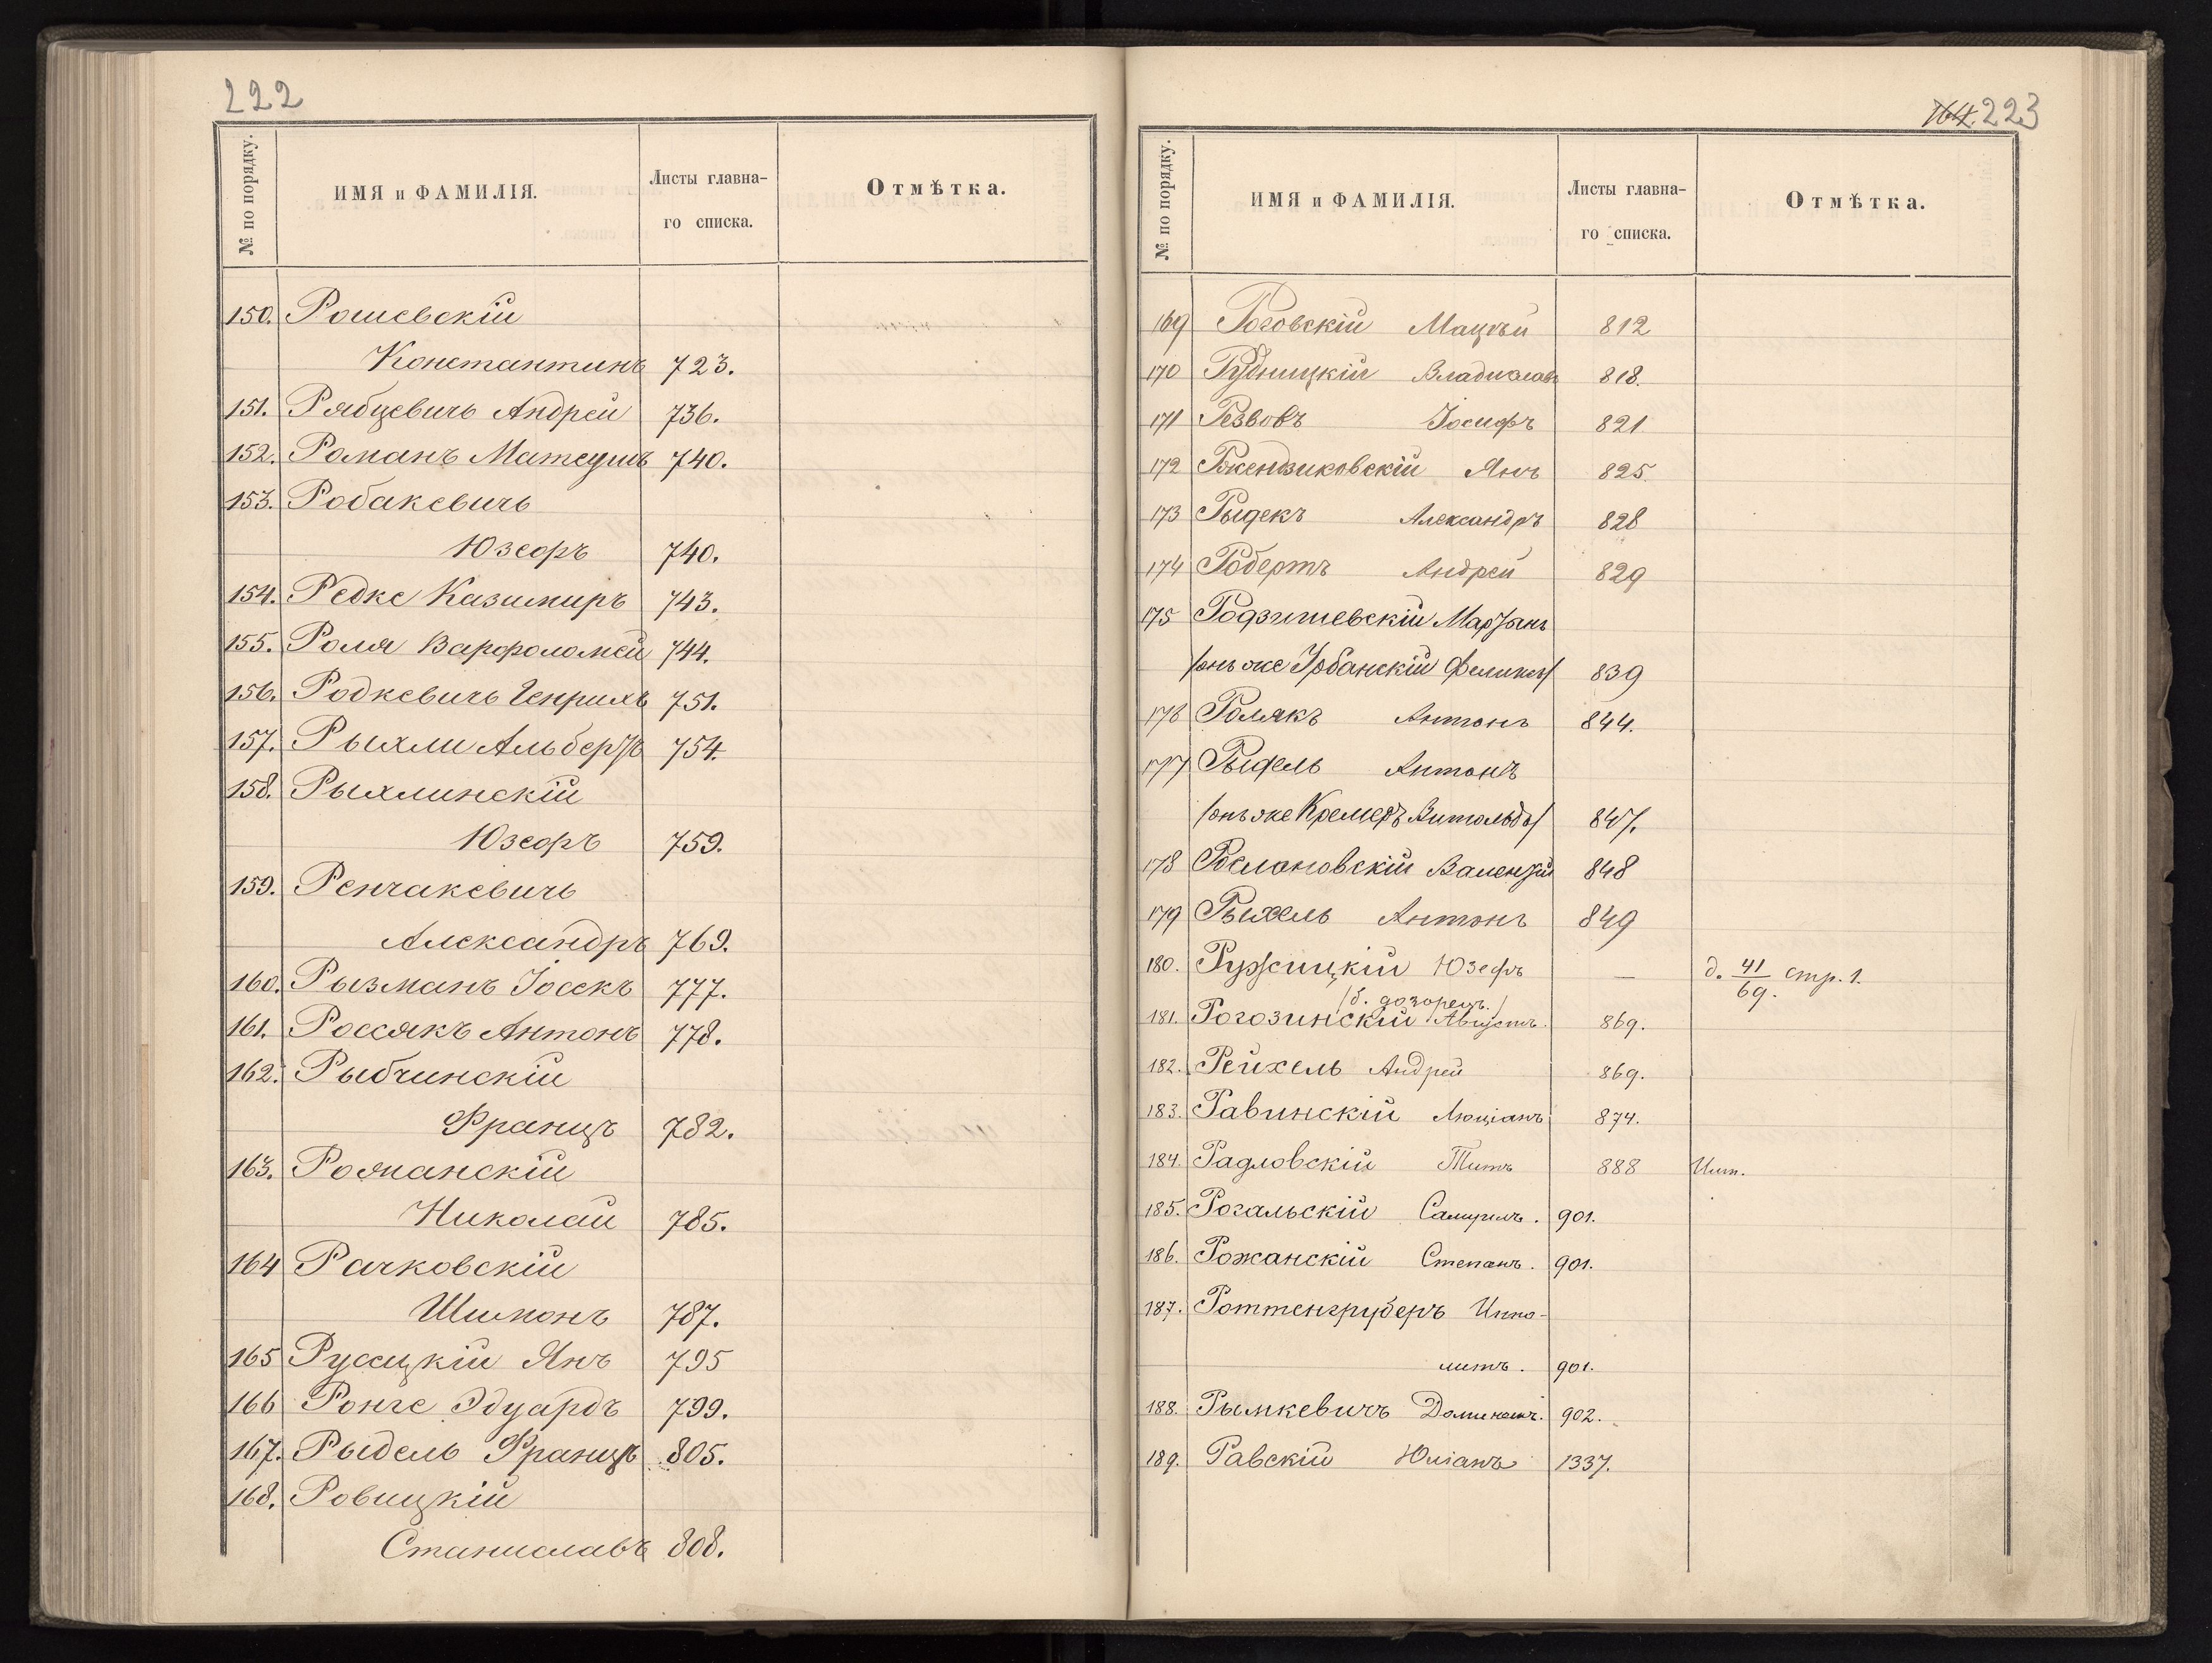 222
№ по порядку.
ИМЯ и ФАМИЛІЯ.
Листы главна-
го списка.
Отмѣтка.
150. Рошевскій
Константинъ 723.
151. Рябцевичъ Андрей 736.
152. Романъ Матеушъ 740.
153. Робакевичъ
Юзефъ 740.
154. Редке Казимиръ 743.
155. Роля Варфоломей 744.
156. Родкевичъ Генрихъ 751.
157. Рыхли Альбертъ 754.
158. Рыхлинскій
Юзефъ 759.
159. Ренчакевичъ
Александръ 769.
160. Рызманъ Іосекъ 777.
161. Россякъ Антонъ 778.
162. Рыбчинскій
Францъ 782.
163. Романскій
Николай 785.
164 Рачковскій
Шимонъ 787.
165 Русецкій Янъ 795
166 Ронге Эдуардъ 799.
167. Рыдель Францъ 805.
168. Ровицкій
Станиславъ 808.
164. 223
№ по порядку.
ИМЯ и ФАМИЛІЯ.
Листы главна-
го списка.
Отмѣтка.
169 Роговскій Мацѣй 812
170 Рудницкій Владиславъ 818.
171 Резвовъ Іосифъ 821.
172 Ржендзиковскій Янъ 825.
173 Рыдекъ Александръ 828
174 Робертъ Андрей 829
175 Родзишевскій Мартынъ
/онъ же Урбанскій Феликсъ/ 839
176 Ролякъ Антонъ 844.
177 Рыдель Антонъ
/онъ же Кремеръ Витольдъ/ 847.
178 Рослановскій Валентій 848
179 Рыхель Антонъ 849
180. Ружицкій Юзефъ — д. 41/69. стр. 1.
/б. дозорецъ./
181. Рогозинскій Августъ. 869.
182. Рейхель Андрей 869.
183. Равинскій Люціанъ 874.
184. Радловскій Титъ 888
185. Рогальскій Самуилъ. 901.
186. Рожанскій Степанъ. 901.
187. Роттенгруберъ Иппо-
литъ. 901.
188. Рымкевичъ Доминикъ. 902.
189. Равскій Юліанъ 1337.